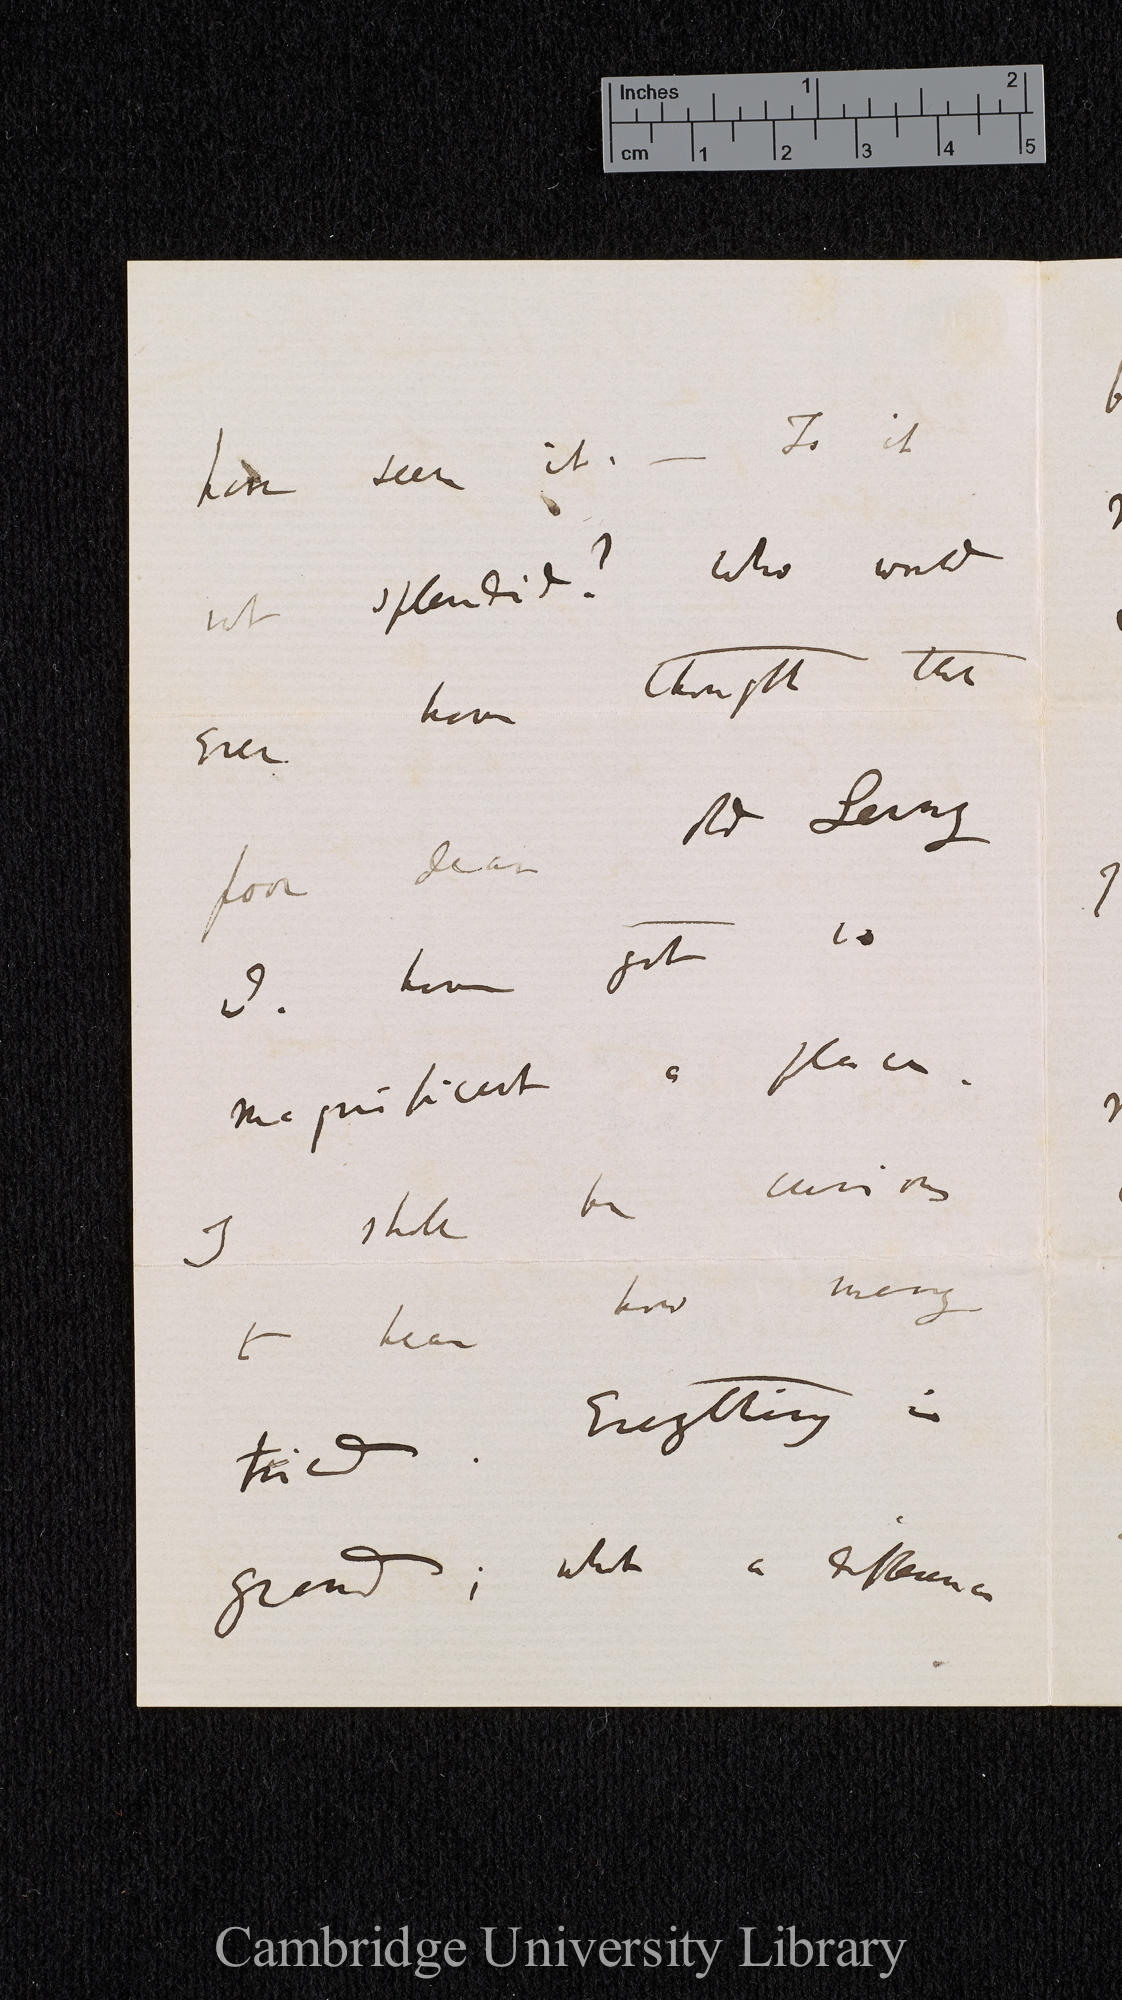 Inches 1 2
cm 1 2 3 4 5
have seen it. — Is it
not splendid? Who would
ever have thought that
poor dear old Lenny
wd. have got so
magnificent a place.
I shall be curious
to hear how many
tried. Everything is
grand; what a difference
Cambridge University Library